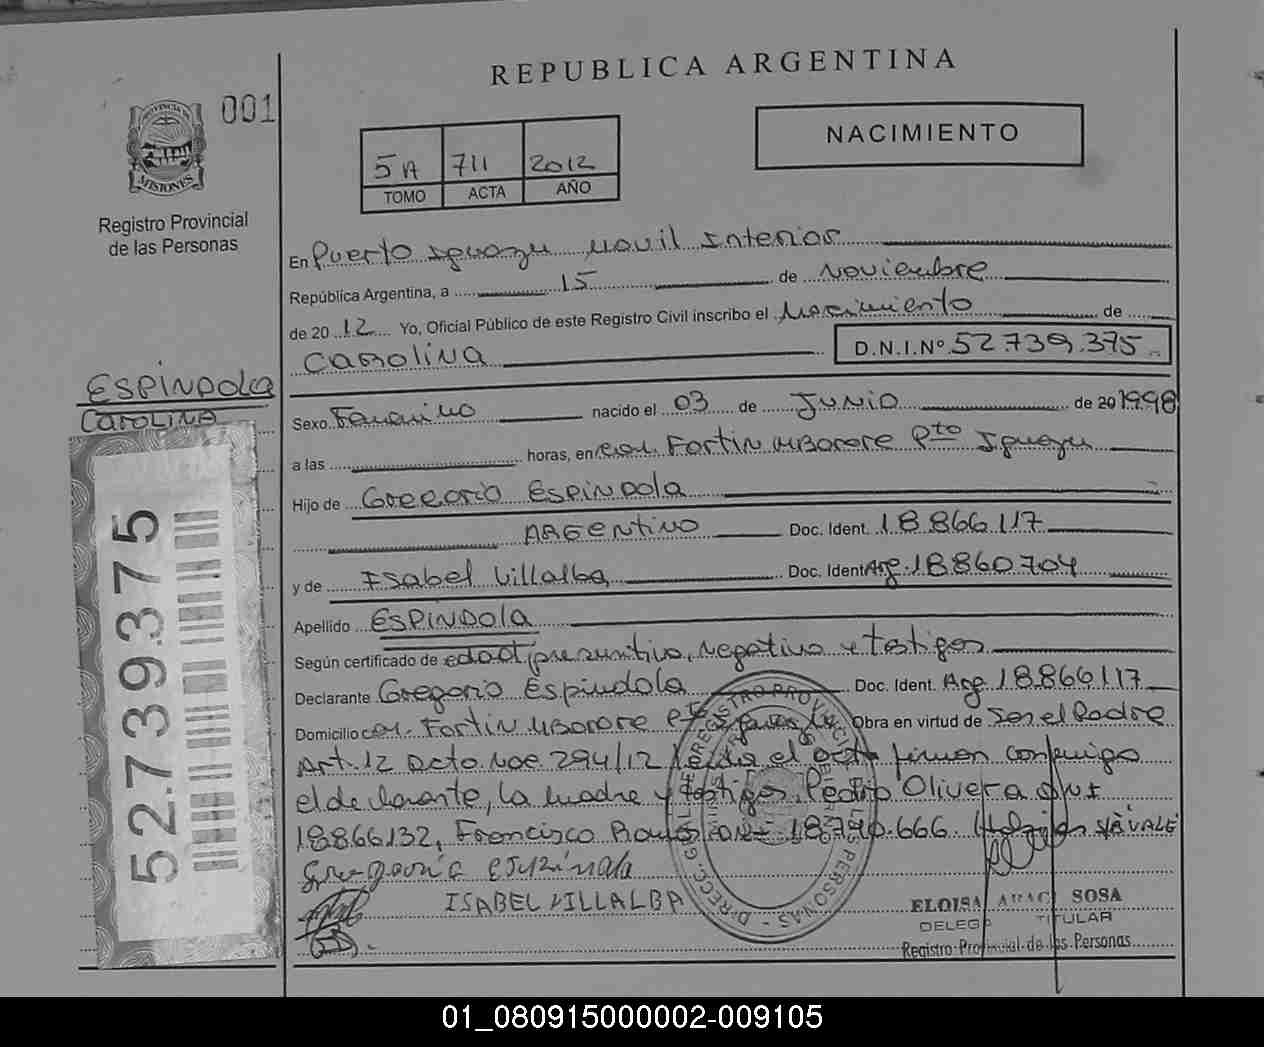 REPUBLICA ARGENTINA
001
NACIMIENTO
5A 711 2012
TOMO ACTA AÑO
PROVINCIA DE MISIONES
Registro Provincial
de las Personas
En Puerto Iguazu Movil Interior
República Argentina, a 15 de Noviembre
de 2012 Yo, Oficial Público de este Registro Civil inscribo el Nacimiento de
Carolina D.N.I.Nº 52.739.375
ESPINDOLA
CAROLINA
Sexo Femenino nacido el 03 de Junio de 201998
a las horas, en Fortin Mborore Pto Iguazu
Hijo de Gregorio Espindola
Argentino Doc. Ident. 18.866.117
y de Isabel Villalba Doc. Ident Arg. 18860704
Apellido ESPINDOLA
Según certificado de edad presuntiva, negativa y testigos
Declarante Gregorio Espindola Doc. Ident. Arg 18866117
Domicilio Fortin Mborore Pto Iguazu Obra en virtud de ser el Padre
Art. 12 Dcto. 294/12 leida el acta firman conmigo
el declarante, la madre y testigos, Pedro Olivera DNI
18866132, Francisco DNI 18.790.666 VALE
ISABEL VILLALBA
ELOISA SOSA
DELEG TITULAR
Registro Provincial de las Personas
52739375
01_080915000002-009105